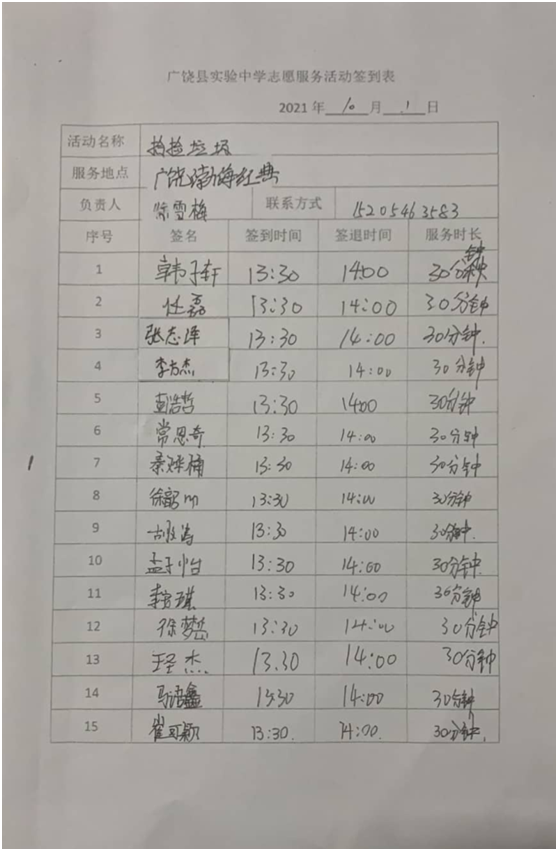 广饶县实验中学志愿服务活动签到表
2021年 10 月 1 日
活动名称 捡捡垃圾
服务地点 广饶渤海红典
负责人 徐雪梅 联系方式 15205463583
序号 签名 签到时间 签退时间 服务时长
1 韩子轩 13:30 14:00 30分钟
2 任磊 13:30 14:00 30分钟
3 张志泽 13:30 14:00 30分钟.
4 李方杰 13:30 14:00 30分钟
5 浩哲 13:30 14:00 30分钟
6 常思奇 13:30 14:00 30分钟
7 13:30 14:00 30分钟
8 徐韶 13:30 14:00 30分钟
9 13:30 14:00 30分钟.
10 孟子怡 13:30 14:00 30分钟.
11 李 琪 13:30 14:00 30分钟
12 徐梦 13:30 14:00 30分钟
13 王圣杰 13.30 14:00 30分钟
14 马语鑫 13:30 14:00 30分钟
15 崔可颖 13:30. 14:00. 30分钟.